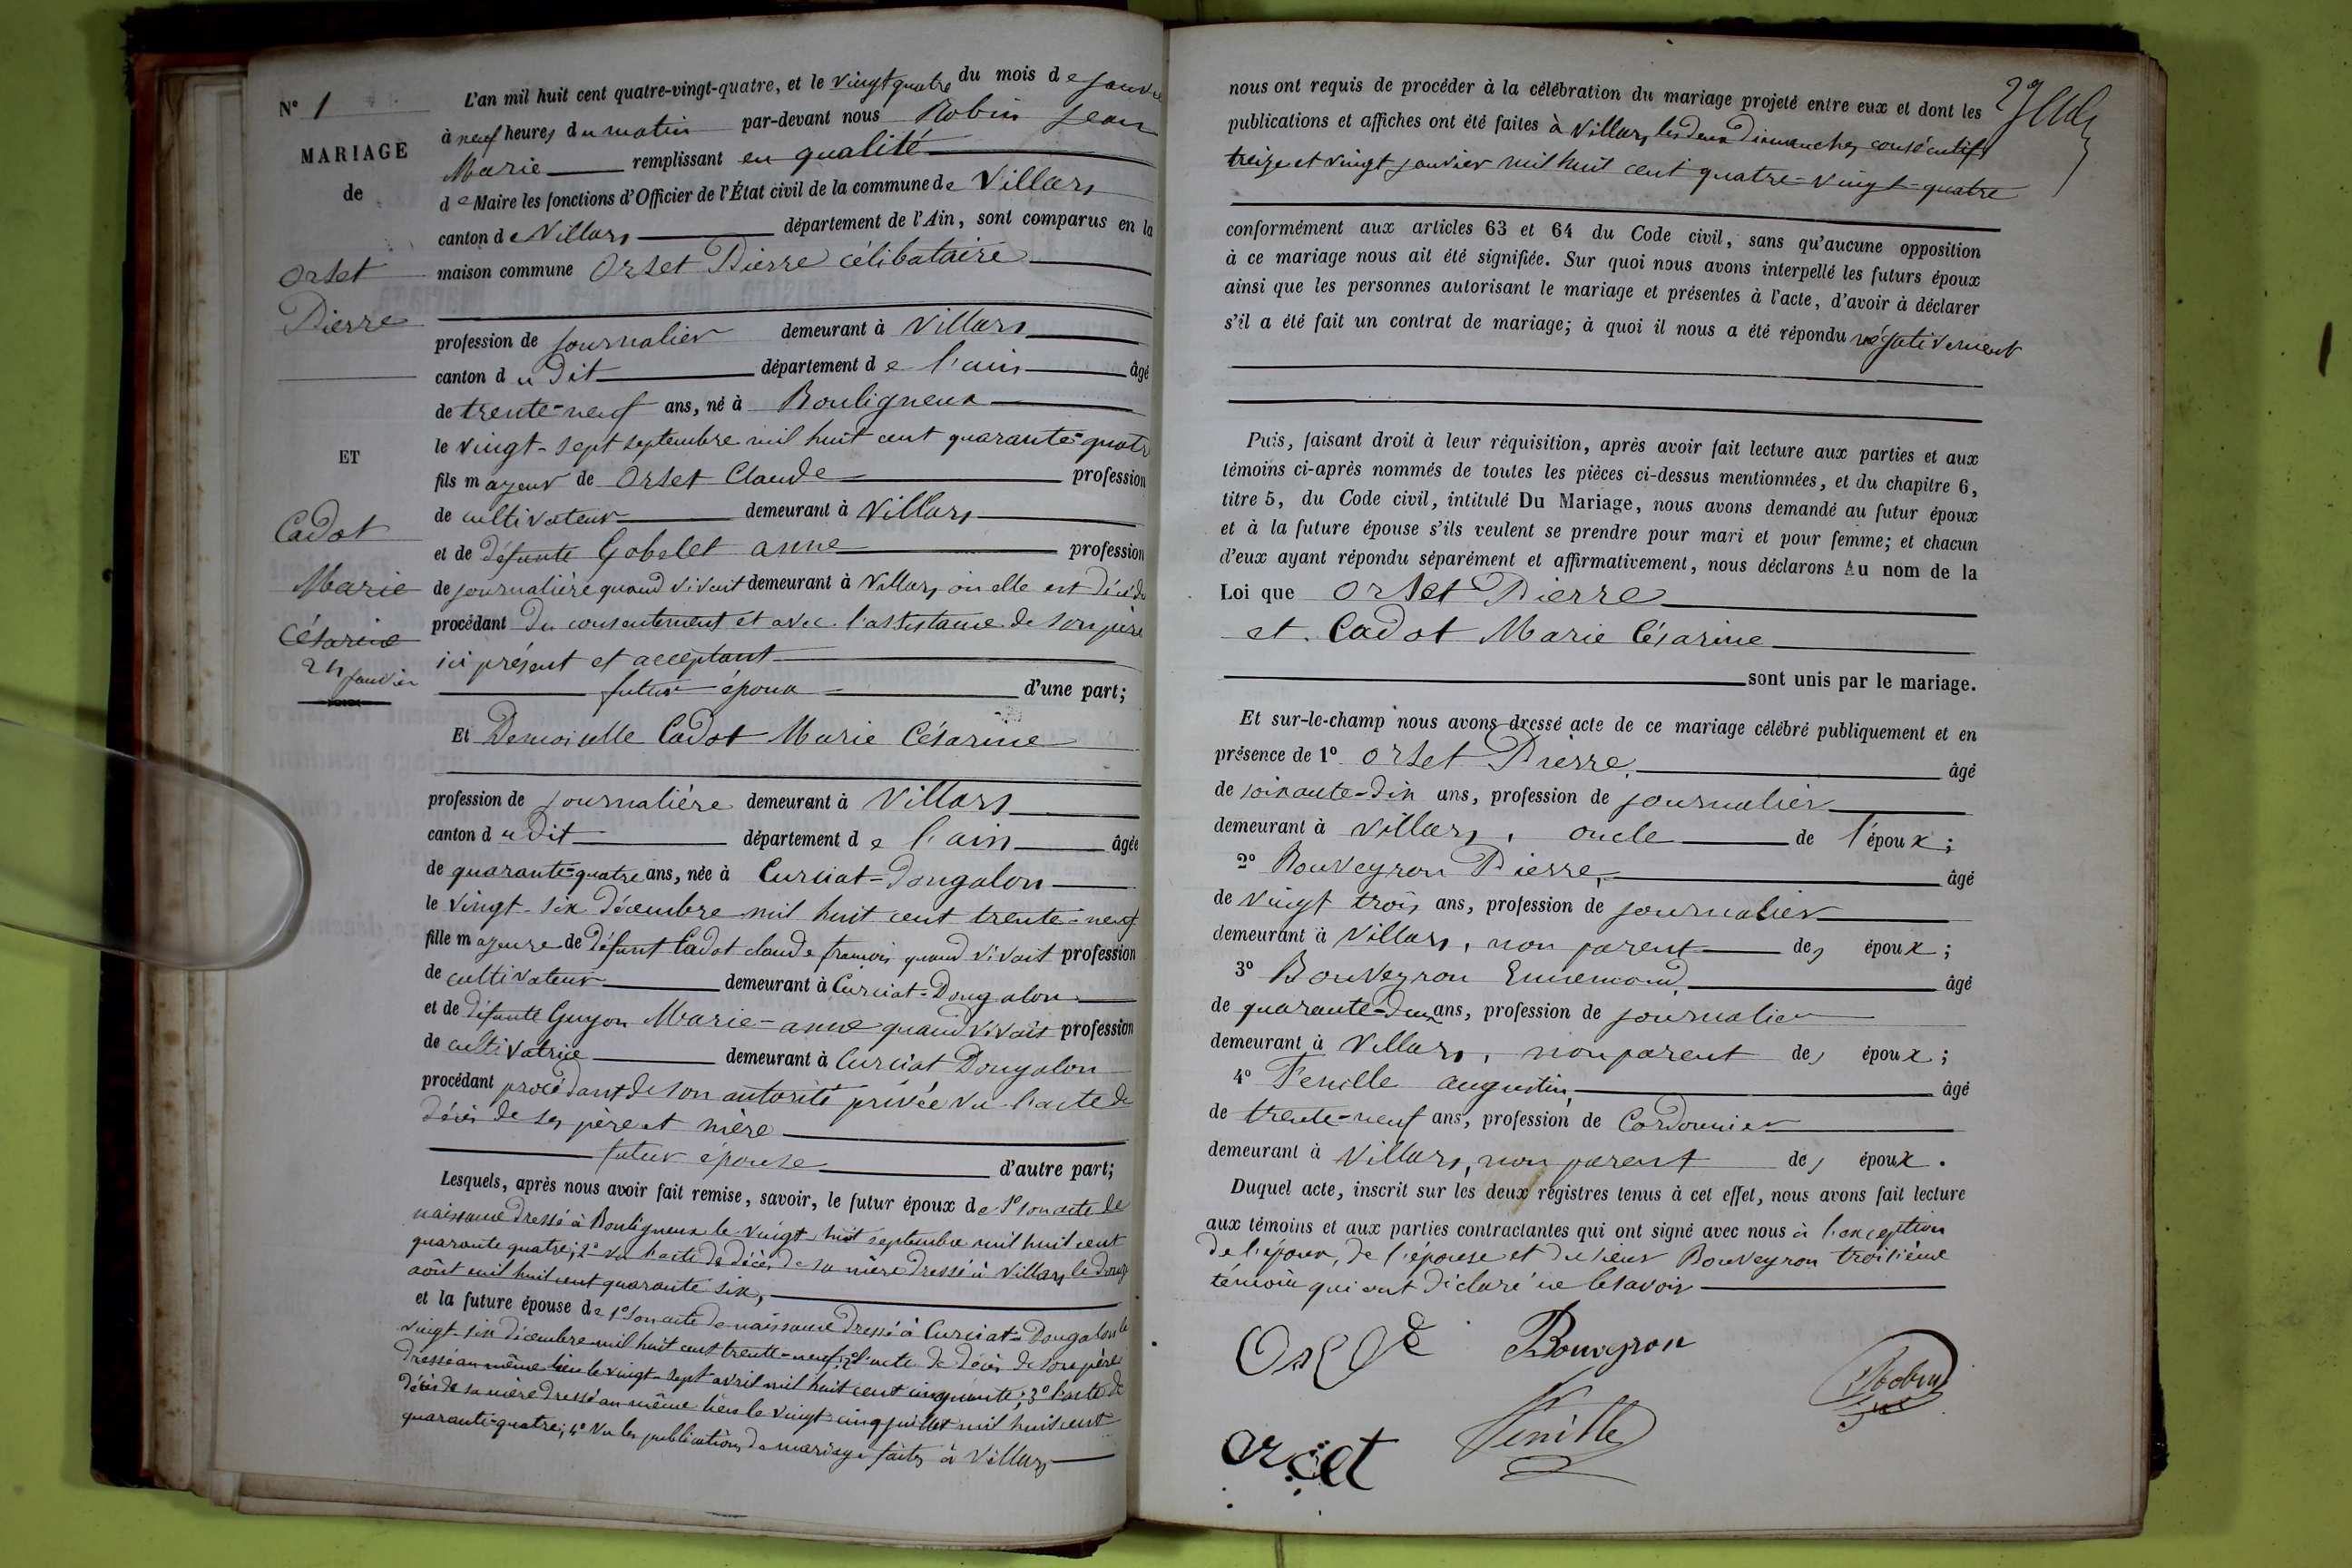 N° 1
MARIAGE
de
Orset
Pierre
ET
Cadot
Marie
Césarine
24 janvier
L'an mil huit cent quatre-vingt-quatre, et le vingt quatre du mois de janvier
à neuf heures du matin par-devant nous Robin Jean
Marie remplissant en qualité
de Maire les fonctions d'Officier de l'État civil de la commune de Villars
canton de Villars département de l'Ain, sont comparus en la
maison commune Orset Pierre célibataire
profession de journalier demeurant à Villars
canton du dit département de l'ain âgé
de trente-neuf ans, né à Bouligneux
le vingt-sept septembre mil huit cent quarante-quatre
fils majeur de Orset Claude profession
de cultivateur demeurant à Villars
et de défunte Gobelet anne profession
de journalière quand vivait demeurant à Villars où elle est décédée
procédant du consentement et avec l'assistance de son père
ici présent et acceptant
futur époux d'une part;
Et Demoiselle Cadot Marie Césarine
profession de journalière demeurant à Villars
canton du dit département de l'ain âgée
de quarante-quatre ans, née à Curciat-Dongalon
le vingt-six décembre mil huit cent trente-neuf
fille majeure de défunt Cadot claude francois quand vivait profession
de cultivateur demeurant à Curciat-Dongalon
et de défunte Guyon Marie-anne quand vivait profession
de cultivatrice demeurant à Curciat Dongalon
procédant procédant de son autorité privée vu l'acte de
décès de ses père et mère
futur épouse d'autre part;
Lesquels, après nous avoir fait remise, savoir, le futur époux de 1° son acte de
naissance dressé à Bouligneux le vingt-huit septembre mil huit cent
quarante quatre; 2° vu l'acte de décès de sa mère dressé à Villars le douze
août mil huit cent quarante six,
et la future épouse de 1° son acte de naissance dressé à Curciat-Dongalon le
vingt-six décembre mil huit cent trente-neuf; 2° l'acte de décès de son père
dressé au même lieu le vingt-sept avril mil huit cent cinquante; 3° l'acte de
décès de sa mère dressé au même lieu le vingt-cinq juillet mil huit cent
quarante-quatre; 4° vu les publications de mariage faites à Villars
nous ont requis de procéder à la célébration du mariage projeté entre eux et dont les
publications et affiches ont été faites à Villars les deux Dimanches consécutifs
treize et vingt janvier mil huit cent quatre-vingt-quatre
conformément aux articles 63 et 64 du Code civil, sans qu'aucune opposition
à ce mariage nous ait été signifiée. Sur quoi nous avons interpellé les futurs époux
ainsi que les personnes autorisant le mariage et présentes à l'acte, d'avoir à déclarer
s'il a été fait un contrat de mariage; à quoi il nous a été répondu négativement
Puis, faisant droit à leur réquisition, après avoir fait lecture aux parties et aux
témoins ci-après nommés de toutes les pièces ci-dessus mentionnées, et du chapitre 6,
titre 5, du Code civil, intitulé Du Mariage, nous avons demandé au futur époux
et à la future épouse s'ils veulent se prendre pour mari et pour femme; et chacun
d'eux ayant répondu séparément et affirmativement, nous déclarons Au nom de la
Loi que Orset Pierre
et Cadot Marie Césarine
sont unis par le mariage.
Et sur-le-champ nous avons dressé acte de ce mariage célébré publiquement et en
présence de 1° Orset Pierre, âgé
de soixante-dix ans, profession de journalier
demeurant à Villars, oncle de l'époux;
2° Bouveyron Pierre, âgé
de vingt trois ans, profession de journalier
demeurant à Villars, non parent des époux;
3° Bouveyron Ennemond, âgé
de quarante-deux ans, profession de journalier
demeurant à Villars, non parent des époux;
4° Fenille augustin, âgé
de trente-neuf ans, profession de Cordonnier
demeurant à Villars, non parent des époux.
Duquel acte, inscrit sur les deux registres tenus à cet effet, nous avons fait lecture
aux témoins et aux parties contractantes qui ont signé avec nous à l'exception
de l'époux, de l'épouse et du sieur Bouveyron troisième
témoin qui ont déclaré ne le savoir
Bouveyron
Robin
Fenille
orset